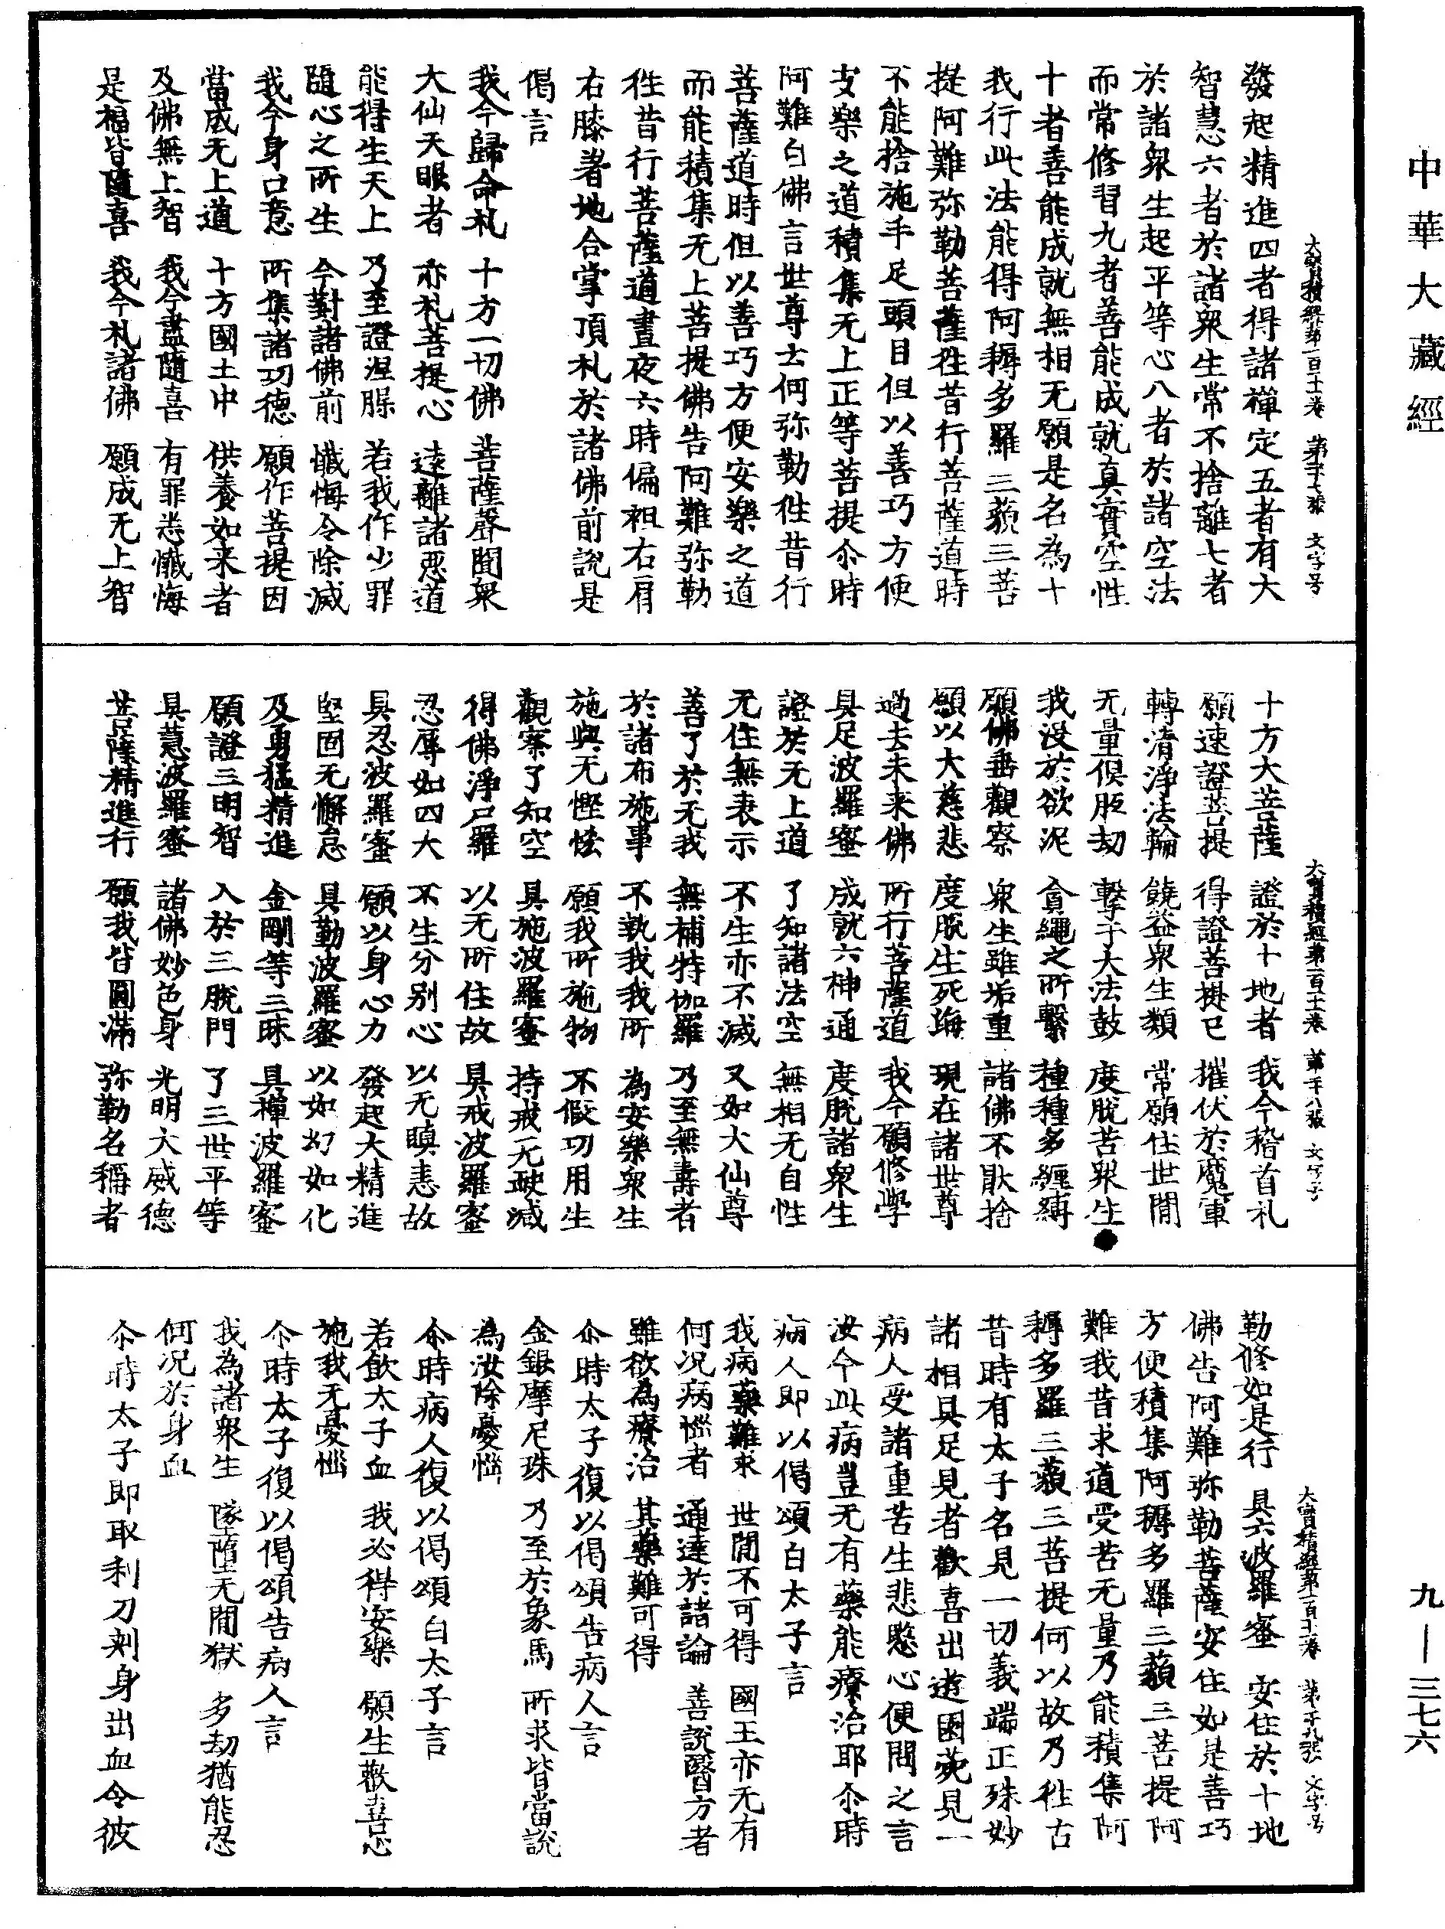 中華大藏經
大寶積經第一百十一卷 第二十七張 文字号
發起精進四者得諸禪定五者有大
智慧六者於諸衆生常不捨離七者
於諸衆生起平等心八者於諸空法
而常修習九者善能成就真實空性
十者善能成就無相无願是名為十
我行此法能得阿耨多羅三藐三菩
提阿難弥勒菩薩徃昔行菩薩道時
不能捨施手足頭目但以善巧方便
安樂之道積集无上正等菩提尒時
阿難白佛言世尊云何弥勒徃昔行
菩薩道時但以善巧方便安樂之道
而能積集无上菩提佛告阿難弥勒
徃昔行菩薩道晝夜六時偏袒右肩
右膝著地合掌頂礼於諸佛前說是
偈言
我今歸命礼 十方一切佛 菩薩聲聞衆
大仙天眼者 亦礼菩提心 遠離諸惡道
能得生天上 乃至證涅槃 若我作少罪
隨心之所生 今對諸佛前 懺悔令除滅
我今身口意 所集諸功德 願作菩提因
當成无上道 十方國土中 供養如来者
及佛無上智 我今盡隨喜 有罪悉懺悔
是福皆隨喜 我今礼諸佛 願成无上智
大寶積經第一百十一卷 第二十八張 文字号
十方大菩薩 證於十地者 我今稽首礼
願速證菩提 得證菩提已 摧伏於魔軍
轉清淨法輪 饒益衆生類 常願住世間
无量俱胝劫 擊于大法鼓 度脫苦衆生
我没於欲泥 貪繩之所繫 種種多纏縛
願佛垂觀察 衆生雖垢重 諸佛不猒捨
願以大慈悲 度脫生死海 現在諸世尊
過去未来佛 所行菩薩道 我今願修學
具足波羅蜜 成就六神通 度脫諸衆生
證於无上道 了知諸法空 無相无自性
无住無表示 不生亦不滅 又如大仙尊
善了於无我 無補特伽羅 乃至無壽者
於諸布施事 不執我我所 為安樂衆生
施與无慳悋 願我所施物 不假功用生
觀察了知空 具施波羅蜜 持戒无缺減
得佛淨尸羅 以无所住故 具戒波羅蜜
忍辱如四大 不生分別心 以无瞋恚故
具忍波羅蜜 願以身心力 發起大精進
堅固无懈怠 具勤波羅蜜 以如幻如化
及勇猛精進 金剛等三昧 具禪波羅蜜
願證三明智 入於三脫門 了三世平等
具慧波羅蜜 諸佛妙色身 光明大威德
菩薩精進行 願我皆圓滿 弥勒名稱者
大寶積經第一百十一卷 第二十九張 文字号
勤修如是行 具六波羅蜜 安住於十地
佛告阿難弥勒菩薩安住如是善巧
方便積集阿耨多羅三藐三菩提阿
難我昔求道受苦无量乃能積集阿
耨多羅三藐三菩提何以故乃徃古
昔時有太子名見一切義端正殊妙
諸相具足見者歡喜出遊園苑見一
病人受諸重苦生悲愍心便問之言
汝今此病豈无有藥能療治耶尒時
病人即以偈頌白太子言
我病藥難求 世間不可得 國王亦无有
何况病惱者 通達於諸論 善說醫方者
雖欲為療治 其藥難可得
尒時太子復以偈頌告病人言
金銀摩尼珠 乃至於象馬 所求皆當說
為汝除憂惱
尒時病人復以偈頌白太子言
若飲太子血 我必得安樂 願生歡喜心
施我无憂惱
尒時太子復以偈頌告病人言
我為諸衆生 墜墮无間獄 多劫猶能忍
何况於身血
尒時太子即取利刀刺身出血令彼
九—三七六